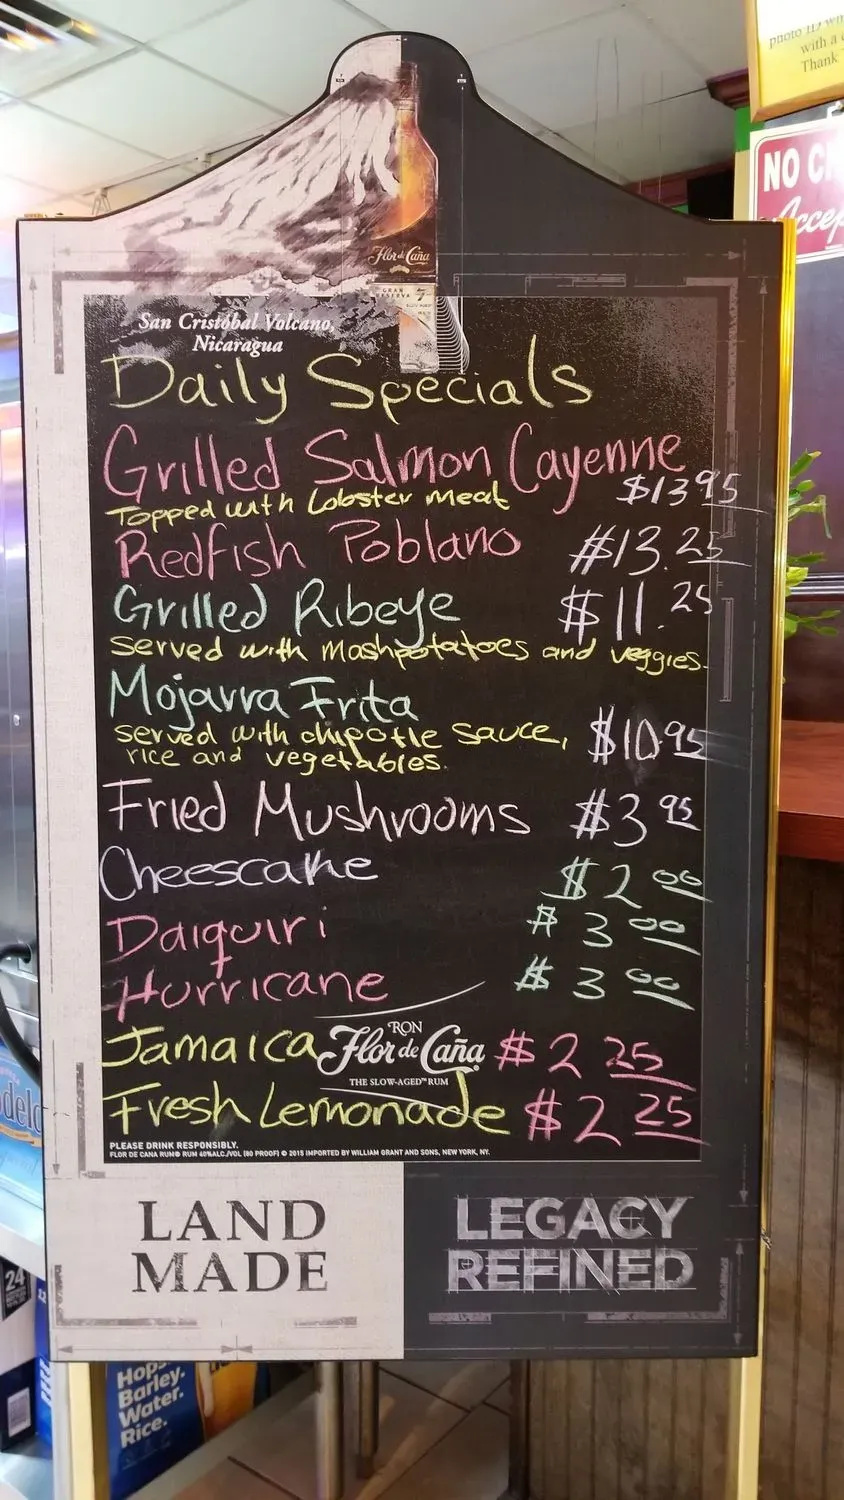 photo ID
with a
Thank
NO
Flor de Caña
GRAN
RESERVA 7
San Cristóbal Volcano,
Nicaragua
Daily Specials
Grilled Salmon Cayenne $13 95
Topped with Lobster meat
Redfish Poblano $13.25
Grilled Ribeye $11.25
served with mashpotatoes and veggies.
Mojarra Frita
served with chipotle sauce, $10.95
rice and vegetables.
Fried Mushrooms $3 95
Cheesecake $2 00
Daiquiri $3 00
Hurricane $3 00
RON
Jamaica Flor de Caña $2 25
THE SLOW-AGED™ RUM
Fresh Lemonade $2 25
PLEASE DRINK RESPONSIBLY.
FLOR DE CANA RUM® RUM 40%ALC./VOL (80 PROOF) © 2015 IMPORTED BY WILLIAM GRANT AND SONS, NEW YORK, NY.
LAND LEGACY
MADE REFINED
24
Hops.
Barley.
Water.
Rice.